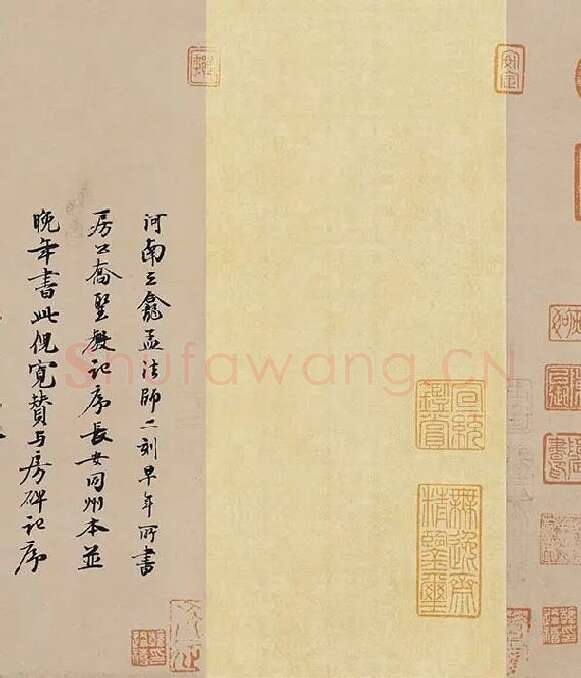 河南三龕孟法師二刻早年所書
房公喬聖教記序長安同州本並
晚年書此倪寬贊与房碑記序
宣統鑑賞
無逸齋精鑒璽
Shufawang.CN